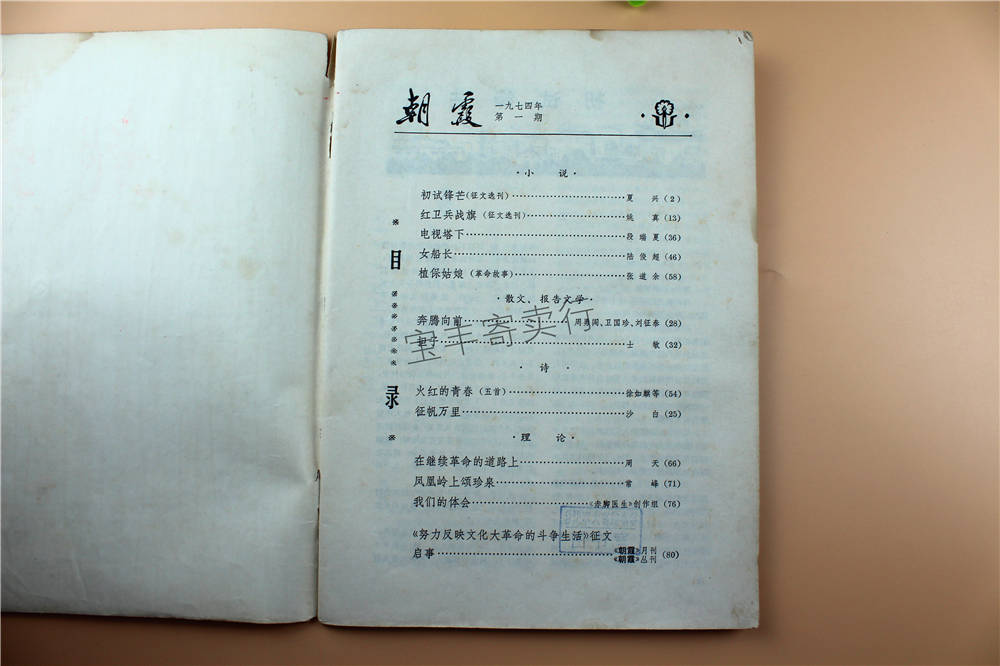 朝霞
一九七四年
第一期
·小 说·
初试锋芒(征文选刊)……夏 兴(2)
红卫兵战旗(征文选刊)……姚 真(13)
电视塔下……段瑞夏(36)
女船长……陆俊超(46)
植保姑娘(革命故事)……张道余(58)
·散文、报告文学·
奔腾向前……周勇闯、卫国珍、刘征泰(28)
士 敏(32)
·诗·
火红的青春(五首)……徐如麒等(54)
征帆万里……沙 白(25)
·理 论·
在继续革命的道路上……周 天(66)
凤凰岭上颂珍泉……常 峰(71)
我们的体会……《赤脚医生》创作组(76)
《努力反映文化大革命的斗争生活》征文
启事……《朝霞》月刊
《朝霞》丛刊(80)
目录
宝丰寄卖行